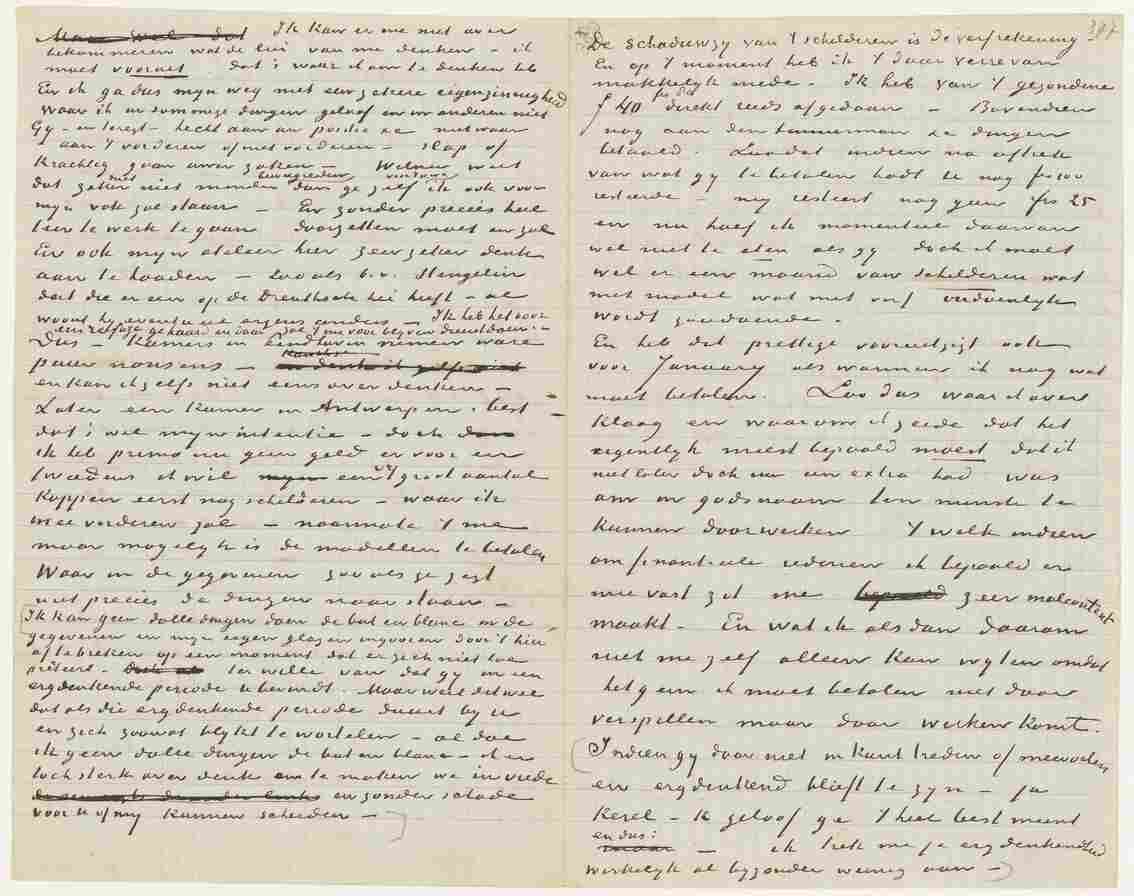 Maar wel dat Ik kan er me niet over
bekommeren wat de lui van me denken – ik
moet vooruit dat's waar ik aan te denken heb
En ik ga dus mijn weg met een zekere eigenzinnigheid
waar ik in sommige dingen geloof en in anderen niet
Gy – en teregt – hecht aan uw positie &c niet waar
aan 't vorderen of niet vorderen – slap of
krachtig gaan uwer zaken – Welnu weet
dat zeker niet minder dan ge zelf ik ook voor
myn vak zal staan – En zonder precies heel
leer te werk te gaan doorzetten moet en zal
En ook myn atelier hier zeer zeker denk
aan te houden – Zooals b.v. Stengelin
dat die er een op de Drenthsche hei heeft – al
woont hy eventueel ergens anders – Ik heb het voor
een refuge gehaard en daar zal 't me voor blyven dienst doen. –
Dus – Kamers in Eindhoven nemen ware
puur nonsens –
en kan ik zelfs niet eens over denken –
Later een kamer in Antwerpen, best
dat's wel myn intentie – doch
ik heb primo nu geen geld er voor en
tweedens ik wil een groot aantal
koppen eerst nog schilderen – waar ik
mee vorderen zal – naarmate 't me
maar mogelyk is de modellen te betalen
Waar in de gegevens zooals ge zegt
niet precies de dingen naar staan –
Ik kan geen dolle dingen doen de but en blanc in de
gegevens en myn eigen glazen ingooien door 't hier
af te breken op een moment dat er zich niet toe
prêteert – ter wille van dat gy in een
ergdenkende periode u bevindt. Maar weet dit wel
dat als die ergdenkende periode duurt by u
en zich zoowat blykt te wortelen – al doe
ik geen dolle dingen de but en blanc – ik er
toch sterk over denk om te maken we in vrede
en zonder schade
voor u of my kunnen scheiden –
397
De schaduwzy van 't schilderen is de verfrekening
En op 't moment heb ik 't daar verre van
makkelyk mede. Ik heb van 't gezondene
f 40 direkt reeds afgedaan – Bovendien
nog aan den timmerman &c dingen
betaald. Zoodat indien na aftrek
van wat gy te betalen hadt u nog frs 100
resteerde – my resteert nog geen frs 25
en nu hoef ik momenteel daarvan
wel niet te eten als gy doch ik moet
wel er een maand van schilderen wat
met model wat met verf verduivelyk
wordt gaandeweg.
En heb dat prettige vooruitzigt ook
voor January als wanneer ik nog wat
moet betalen. Zoo dus waar ik over
klaag en waarom ik zeide dat het
eigentlyk meest bepaald moest dat ik
niet later doch nu een extra had was
om in godsnaam ten minste te
kunnen doorwerken 't welk indien
om financieele redenen ik bepaald er
mee vast zit me zeer malcontent
maakt – En wat ik als dan daarom
niet me zelf alleen kan wyten omdat
hetgeen ik moet betalen niet door
verspillen maar door werken komt.
Indien gy daar niet in kunt treden of meevoelen
en ergdenkend blieft te zyn – ja
kerel – Ik geloof ge 't heel best meent
en dus:
– ik trek me je ergdenkendheid
werkelyk al byzonder weinig aan –